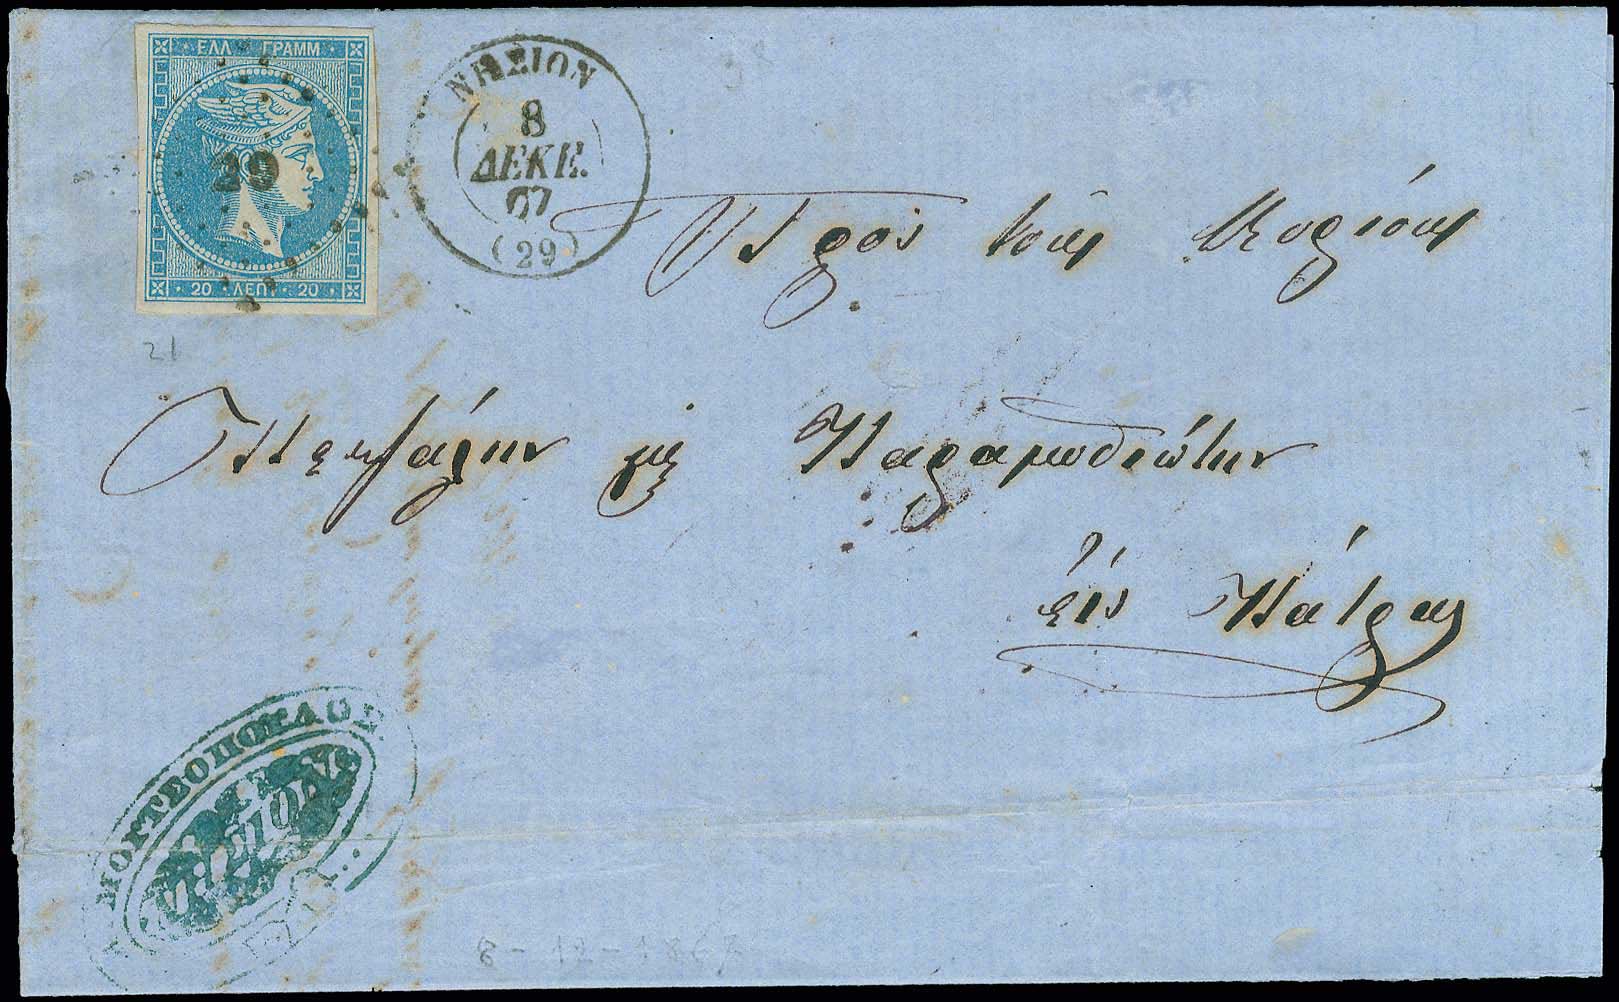 ΕΛΛ ΓΡΑΜΜ
29
20 ΛΕΠΤ 20
ΝΗΣΙΟΝ
8
ΔΕΚΕ.
67
(29)
21
Πρὸς τοὺς Κυρίους
μὲ Παραμυθιώτην
εἰς Πάτρας
8-12-1867